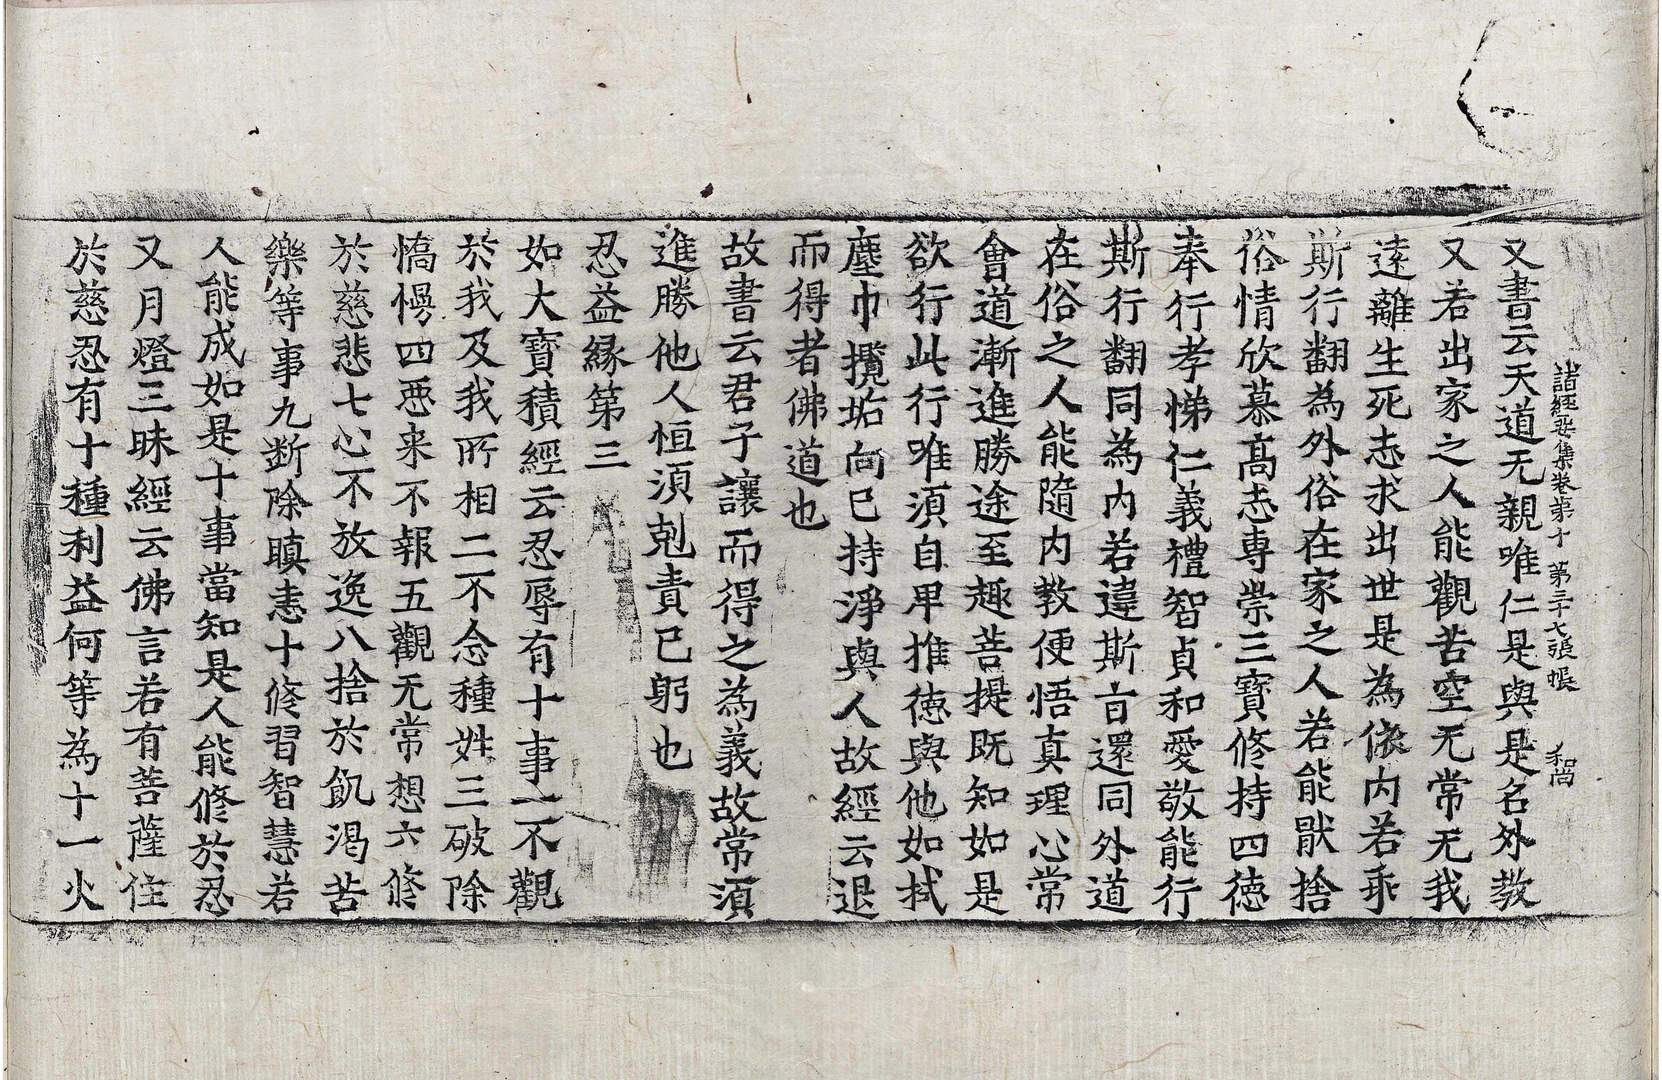 諸経要集卷第十 第三十七張 帳 和尚
又書云天道无親唯仁是與是名外教
又若出家之人能觀苦空无常无我
遠離生死志求出世是為依内若乖
斯行翻為外俗在家之人若能猒捨
俗情欣慕髙志専崇三寳修持四徳
奉行孝悌仁義禮智貞和愛敬能行
斯行翻同為内若違斯旨還同外道
在俗之人能隨内教便悟真理心常
會道漸進勝途至趣菩提既知如是
欲行此行唯湏自卑推徳與他如拭
塵巾攬垢向已持淨與人故經云退
而得者佛道也
故書云君子讓而得之為義故常湏
進勝他人恒湏剋責已躬也
忍益緣第三
如大寶積經云忍辱有十事一不觀
於我及我所相二不念種姓三破除
憍慢四惡来不報五觀无常想六修
於慈悲七心不放逸八捨於飢渴苦
樂等事九断除瞋恚十修習智慧若
人能成如是十事當知是人能修於忍
又月燈三昧經云佛言若有菩薩住
於慈忍有十種利益何等為十一火